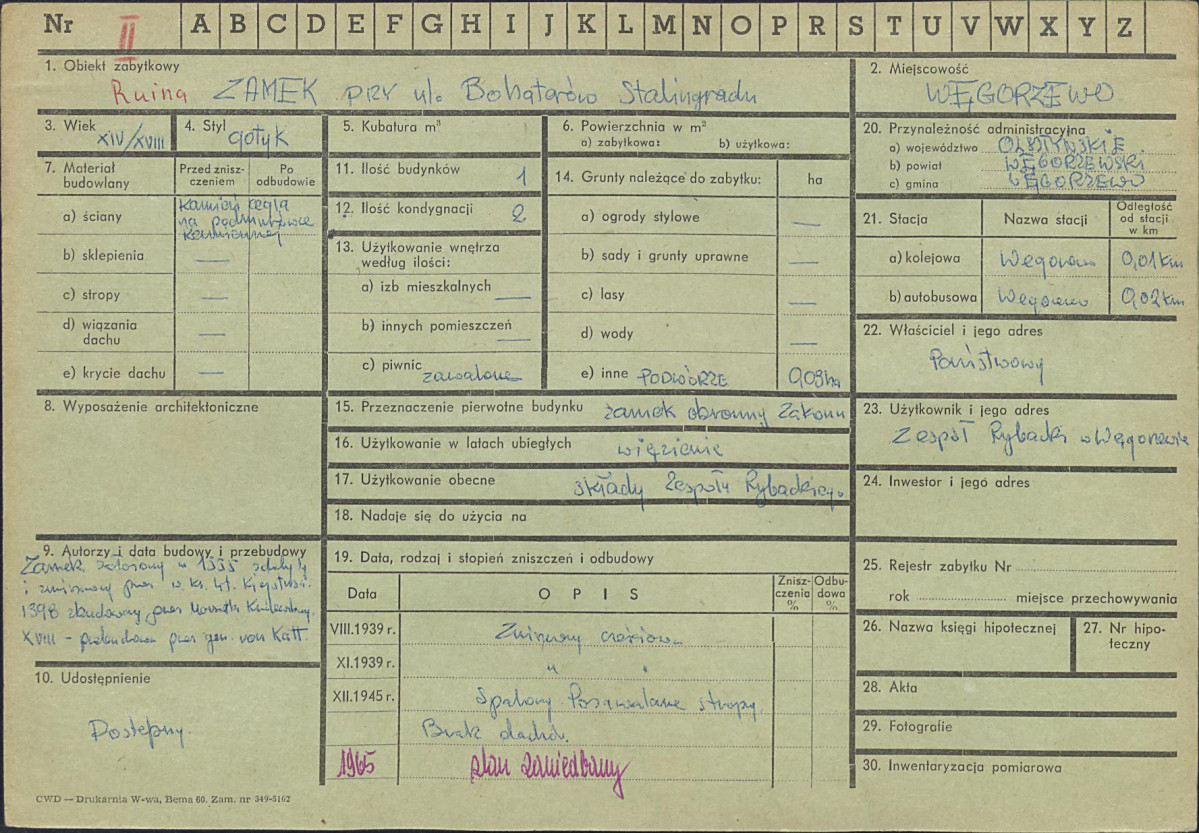 Nr II A B C D E F G H I J K L M N O P R S T U V W X Y Z
1. Obiekt zabytkowy
Ruina ZAMEK przy ul. Bohaterów Stalingradu
2. Miejscowość
WĘGORZEWO
3. Wiek
XIV/XVIII
4. Styl
gotyk
5. Kubatura m³
6. Powierzchnia w m²
a) zabytkowa: b) użytkowa:
20. Przynależność administracyjna
a) województwo OLSZTYŃSKIE
b) powiat WĘGORZEWSKI
c) gmina WĘGORZEWO
7. Materiał budowlany
Przed zniszczeniem
Po odbudowie
a) ściany
kamień cegła
na podmurówce
kamiennej
b) sklepienia —
c) stropy —
d) wiązania dachu —
e) krycie dachu —
11. Ilość budynków 1
12. Ilość kondygnacji 2
13. Użytkowanie wnętrza według ilości:
a) izb mieszkalnych —
b) innych pomieszczeń —
c) piwnic zawalone
14. Grunty należące do zabytku: ha
a) ogrody stylowe —
b) sady i grunty uprawne —
c) lasy —
d) wody —
e) inne PODWÓRZE 0,09ha
21. Stacja
Nazwa stacji
Odległość od stacji w km
a) kolejowa Węgorzewo 0,01km
b) autobusowa Węgorzewo 0,02km
22. Właściciel i jego adres
Państwowy
8. Wyposażenie architektoniczne
15. Przeznaczenie pierwotne budynku zamek obronny Zakonu
16. Użytkowanie w latach ubiegłych więzienie
17. Użytkowanie obecne składy Zespołu Rybackiego
18. Nadaje się do użycia na
23. Użytkownik i jego adres
Zespół Rybacki w Węgorzewie
24. Inwestor i jego adres
9. Autorzy i data budowy i przebudowy
Zamek założony w 1335 zdobyty
i zniszczony przez w. ks. lit. Kiejstuta.
1398 zbudowany przez
XVIII – przebudowa przez gen. von Katt.
10. Udostępnienie
Dostępny.
19. Data, rodzaj i stopień zniszczeń i odbudowy
Data
OPIS
Zniszczenia %
Odbudowa %
VIII.1939 r. Zniszczony częściowo
XI.1939 r. „ „
XII.1945 r. Spalony. Pozawalane stropy.
Brak dachów.
1965 stan zaniedbany
25. Rejestr zabytku Nr
rok miejsce przechowywania
26. Nazwa księgi hipotecznej
27. Nr hipoteczny
28. Akta
29. Fotografie
30. Inwentaryzacja pomiarowa
CWD — Drukarnia W-wa, Bema 60. Zam. nr 349-5162